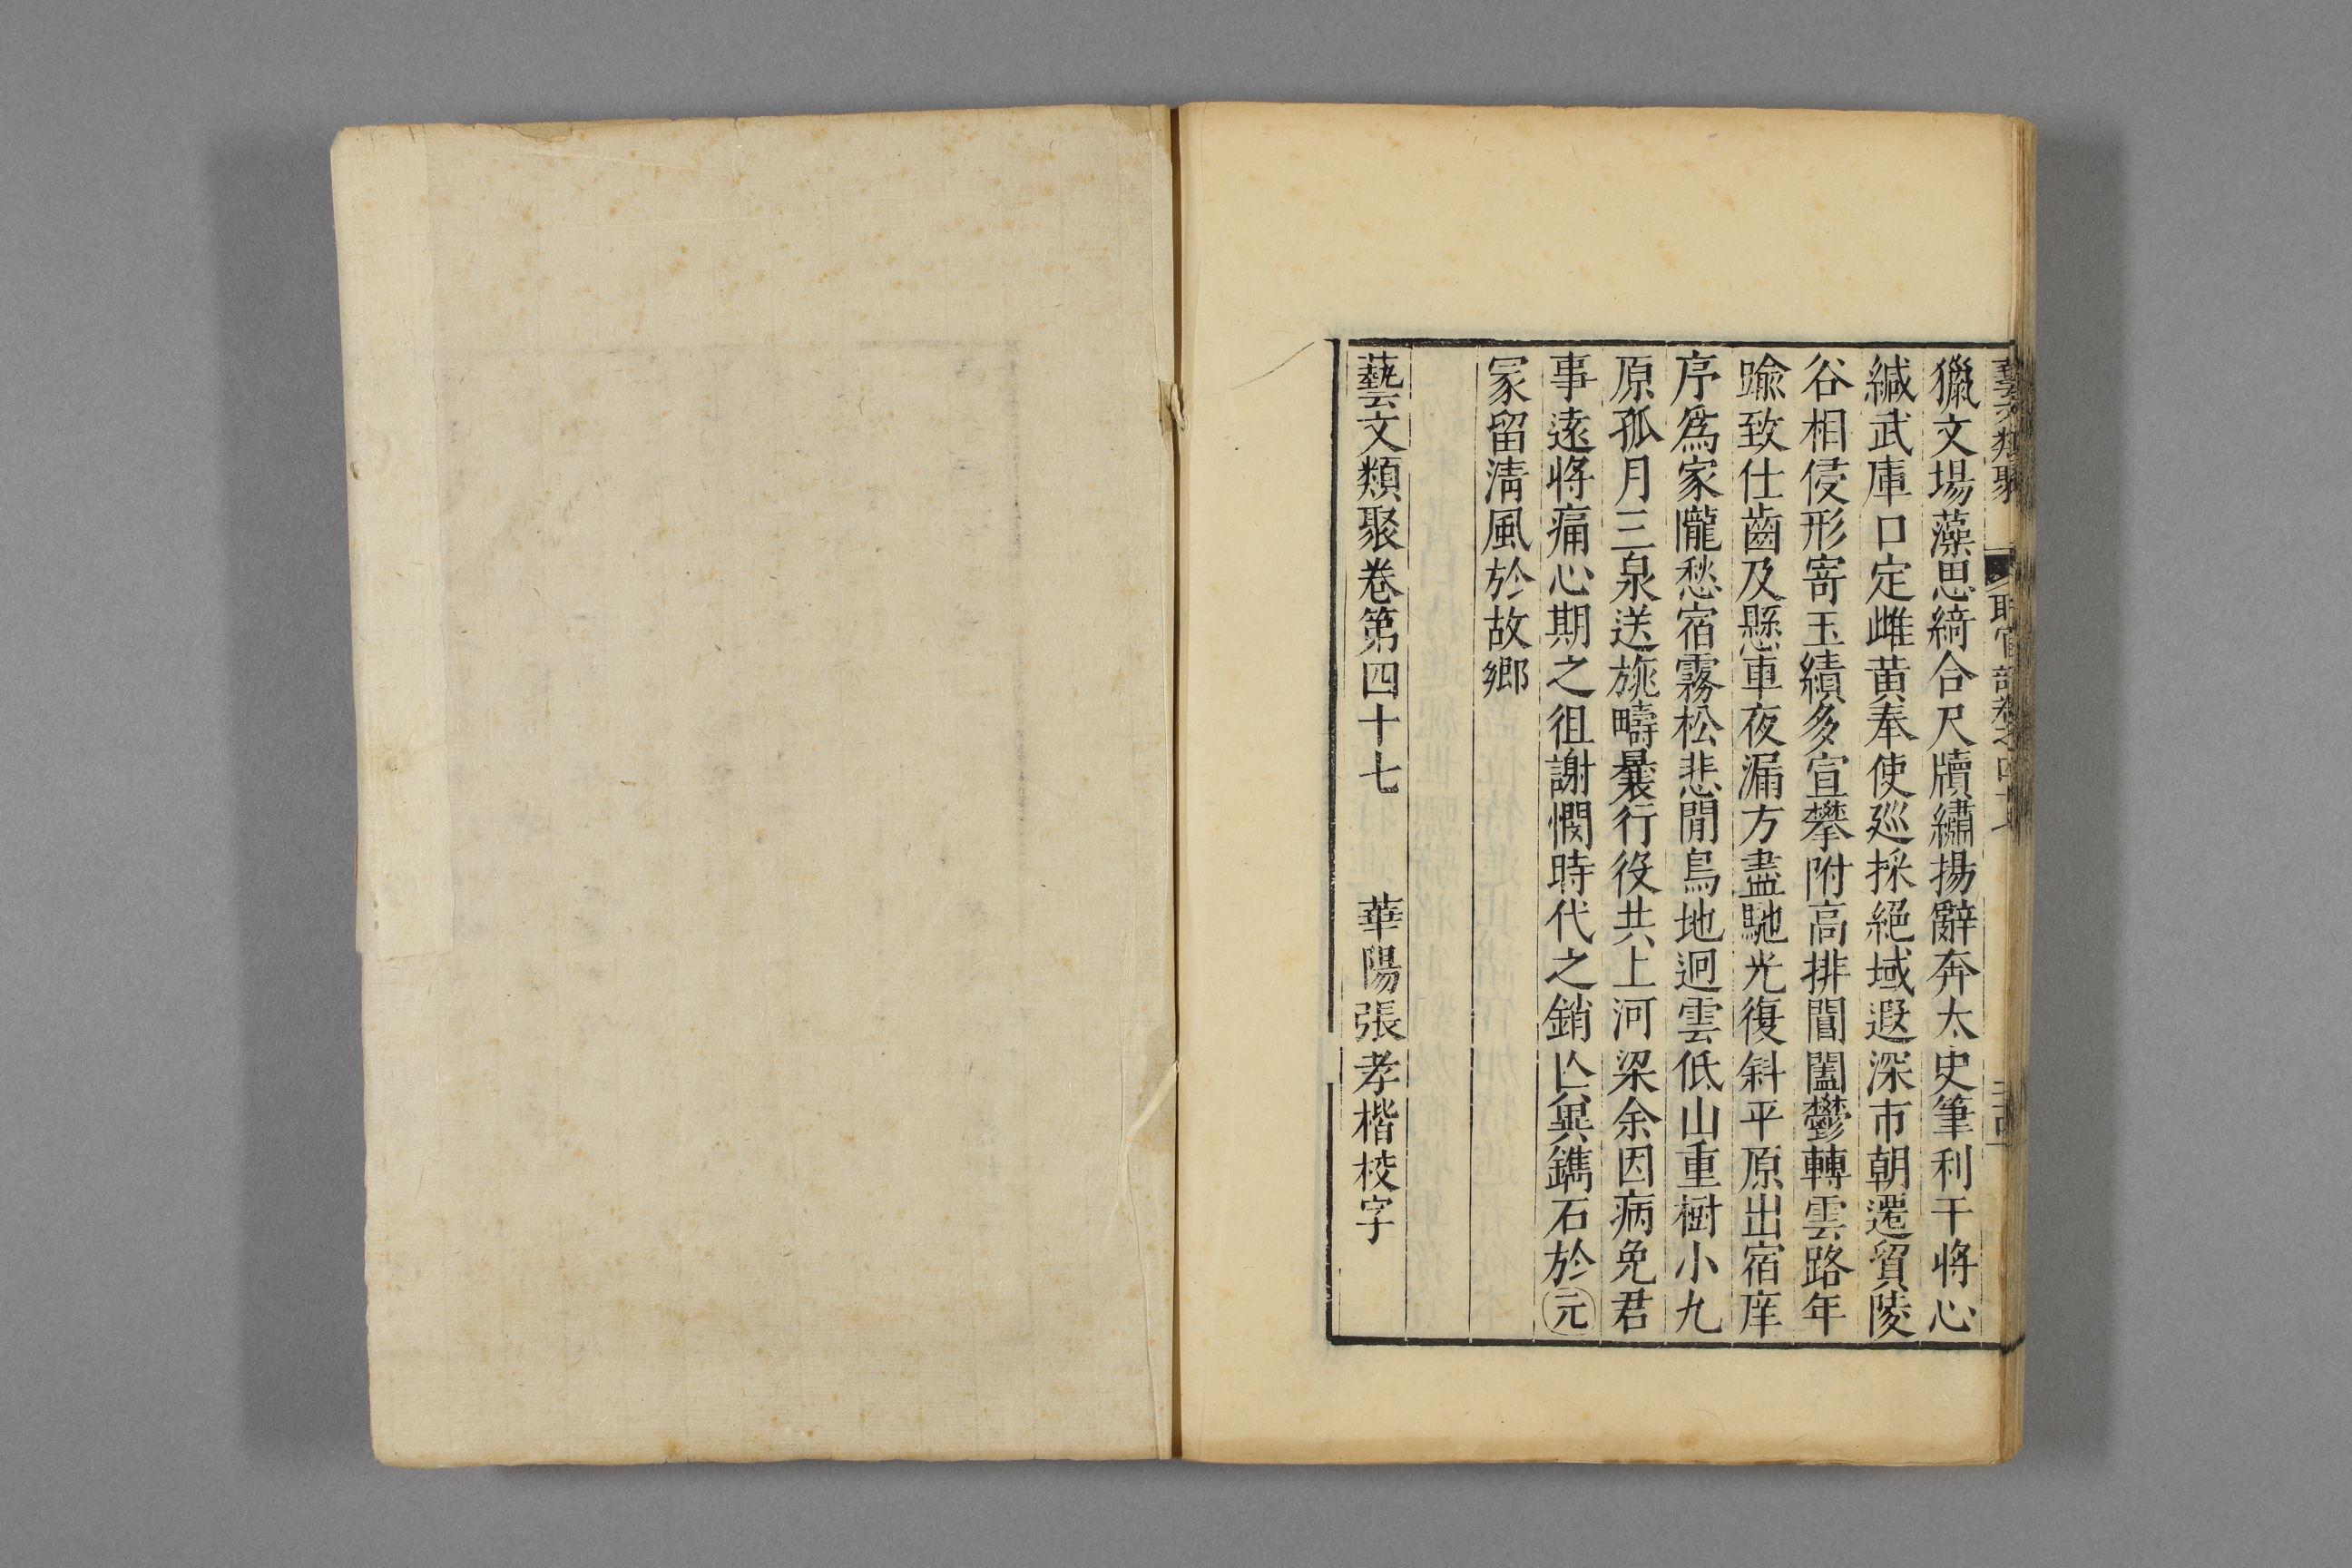 獵文場藻思綺合尺牘繡揚辭奔太史筆利干將心
緘武庫口定雌黃奉使廵採絕域遐深市朝遷貿陵
谷相侵形寄玉績多宣攀附高排閶闔鬱轉雲路年
踰致仕齒及懸車夜漏方盡馳光復斜平原出宿庠
序爲家隴愁宿霧松悲閒鳥地迥雲低山重樹小九
原孤月三泉送旐疇曩行役共上河梁余因病免君
事遠將痛心期之徂謝憫時代之銷亾與鐫石於元
冡留淸風於故鄉
藝文類聚卷第四十七 華陽張孝楷校字